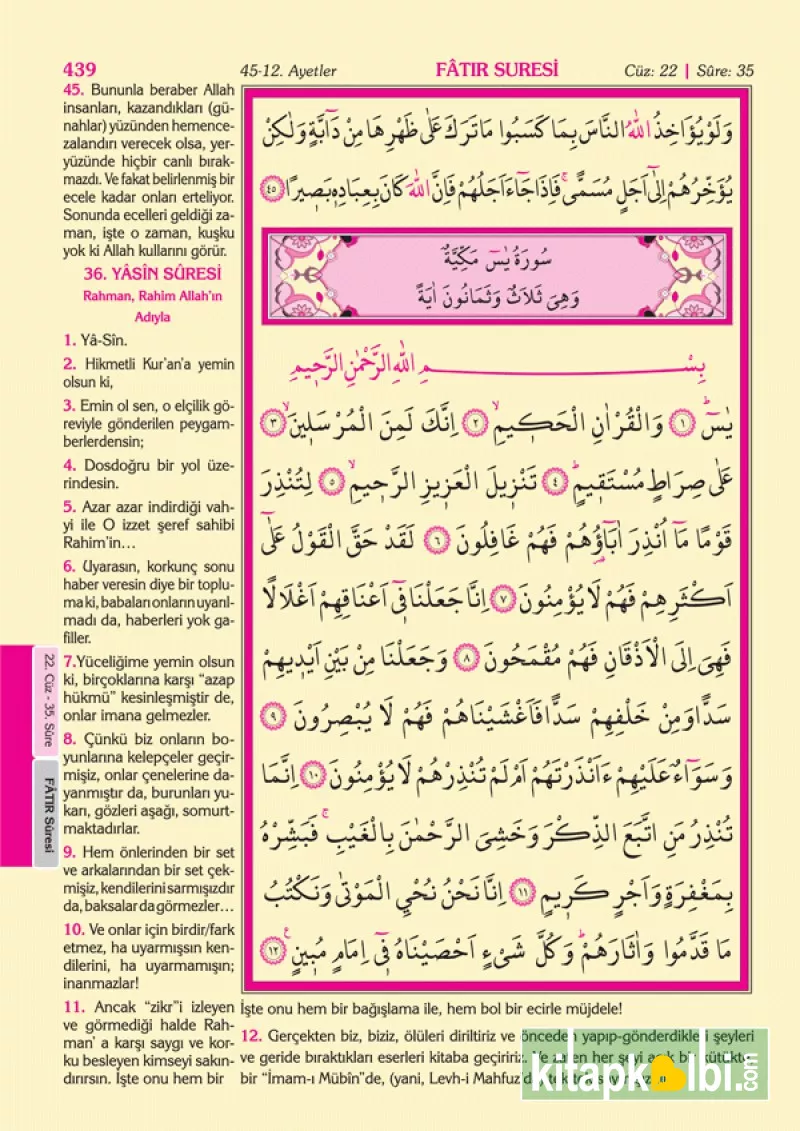 439
45-12. Ayetler
FÂTIR SURESİ
Cüz: 22 | Sûre: 35
45. Bununla beraber Allah
insanları, kazandıkları (gü-
nahlar) yüzünden hemence-
zalandırı verecek olsa, yer-
yüzünde hiçbir canlı bırak-
mazdı. Ve fakat belirlenmiş bir
ecele kadar onları erteliyor.
Sonunda ecelleri geldiği za-
man, işte o zaman, kuşku
yok ki Allah kullarını görür.
36. YÂSİN SÛRESİ
Rahman, Rahim Allah'ın
Adıyla
1. Yâ-Sîn.
2. Hikmetli Kur'an'a yemin
olsun ki,
3. Emin ol sen, o elçilik gö-
reviyle gönderilen peygam-
berlerdensin;
4. Dosdoğru bir yol üze-
rindesin.
5. Azar azar indirdiği vah-
yi ile O izzet şeref sahibi
Rahim'in...
6. Uyarasın, korkunç sonu
haber veresin diye bir toplu-
ma ki, babaları onların uyarıl-
madı da, haberleri yok ga-
filler.
7.Yüceliğime yemin olsun
ki, birçoklarına karşı “azap
hükmü” kesinleşmiştir de,
onlar imana gelmezler.
8. Çünkü biz onların bo-
yunlarına kelepçeler geçir-
mişiz, onlar çenelerine da-
yanmıştır da, burunları yu-
karı, gözleri aşağı, somurt-
maktadırlar.
9. Hem önlerinden bir set
ve arkalarından bir set çek-
mişiz, kendilerini sarmışızdır
da, baksalar da görmezler...
10. Ve onlar için birdir/fark
etmez, ha uyarmışsın ken-
dilerini, ha uyarmamışın;
inanmazlar!
11. Ancak “zikr”i izleyen
ve görmediği halde Rah-
man' a karşı saygı ve kor-
ku besleyen kimseyi sakın-
dırırsın. İşte onu hem bir
وَلَوْ يُؤَاخِذُ اللّٰهُ النَّاسَ بِمَا كَسَبُوا مَا تَرَكَ عَلٰى ظَهْرِهَا مِنْ دَٓابَّةٍ وَلٰكِنْ
يُؤَخِّرُهُمْ اِلٰٓى اَجَلٍ مُسَمًّىۚ فَاِذَا جَٓاءَ اَجَلُهُمْ فَاِنَّ اللّٰهَ كَانَ بِعِبَادِه۪ بَص۪يرًا ٤٥
سُورَةُ يٰسٓ مَكِّيَّةٌ
وَهِيَ ثَلَاثٌ وَثَمَانُونَ اٰيَةً
بِسْمِ اللّٰهِ الرَّحْمٰنِ الرَّح۪يمِ
يٰسٓ ۜ ١ وَالْقُرْاٰنِ الْحَك۪يمِۙ ٢ اِنَّكَ لَمِنَ الْمُرْسَل۪ينَۙ ٣
عَلٰى صِرَاطٍ مُسْتَق۪يمٍۜ ٤ تَنْز۪يلَ الْعَز۪يزِ الرَّح۪يمِۙ ٥ لِتُنْذِرَ
قَوْمًا مَٓا اُنْذِرَ اٰبَٓاؤُ۬هُمْ فَهُمْ غَافِلُونَ ٦ لَقَدْ حَقَّ الْقَوْلُ عَلٰٓى
اَكْثَرِهِمْ فَهُمْ لَا يُؤْمِنُونَ ٧ اِنَّا جَعَلْنَا ف۪ٓي اَعْنَاقِهِمْ اَغْلَالًا
فَهِيَ اِلَى الْاَذْقَانِ فَهُمْ مُقْمَحُونَ ٨ وَجَعَلْنَا مِنْ بَيْنِ اَيْد۪يهِمْ
سَدًّا وَمِنْ خَلْفِهِمْ سَدًّا فَاَغْشَيْنَاهُمْ فَهُمْ لَا يُبْصِرُونَ ٩
وَسَوَٓاءٌ عَلَيْهِمْ ءَاَنْذَرْتَهُمْ اَمْ لَمْ تُنْذِرْهُمْ لَا يُؤْمِنُونَ ١٠ اِنَّمَا
تُنْذِرُ مَنِ اتَّبَعَ الذِّكْرَ وَخَشِيَ الرَّحْمٰنَ بِالْغَيْبِۚ فَبَشِّرْهُ
بِمَغْفِرَةٍ وَاَجْرٍ كَر۪يمٍ ١١ اِنَّا نَحْنُ نُحْيِ الْمَوْتٰى وَنَكْتُبُ
مَا قَدَّمُوا وَاٰثَارَهُمْۜ وَكُلَّ شَيْءٍ اَحْصَيْنَاهُ ف۪ٓي اِمَامٍ مُب۪ينٍ۟ ١٢
İşte onu hem bir bağışlama ile, hem bol bir ecirle müjdele!
12. Gerçekten biz, biziz, ölüleri diriltiriz ve önceden yapıp-gönderdikleri şeyleri
ve geride bıraktıkları eserleri kitaba geçiririz. Ve zaten her şeyi açık bir kütükte
bir “İmam-ı Mübîn”de, (yani, Levh-i Mahfuz'da)
22. Cüz - 35. Sûre
FÂTIR Sûresi
kitapkalbi.com